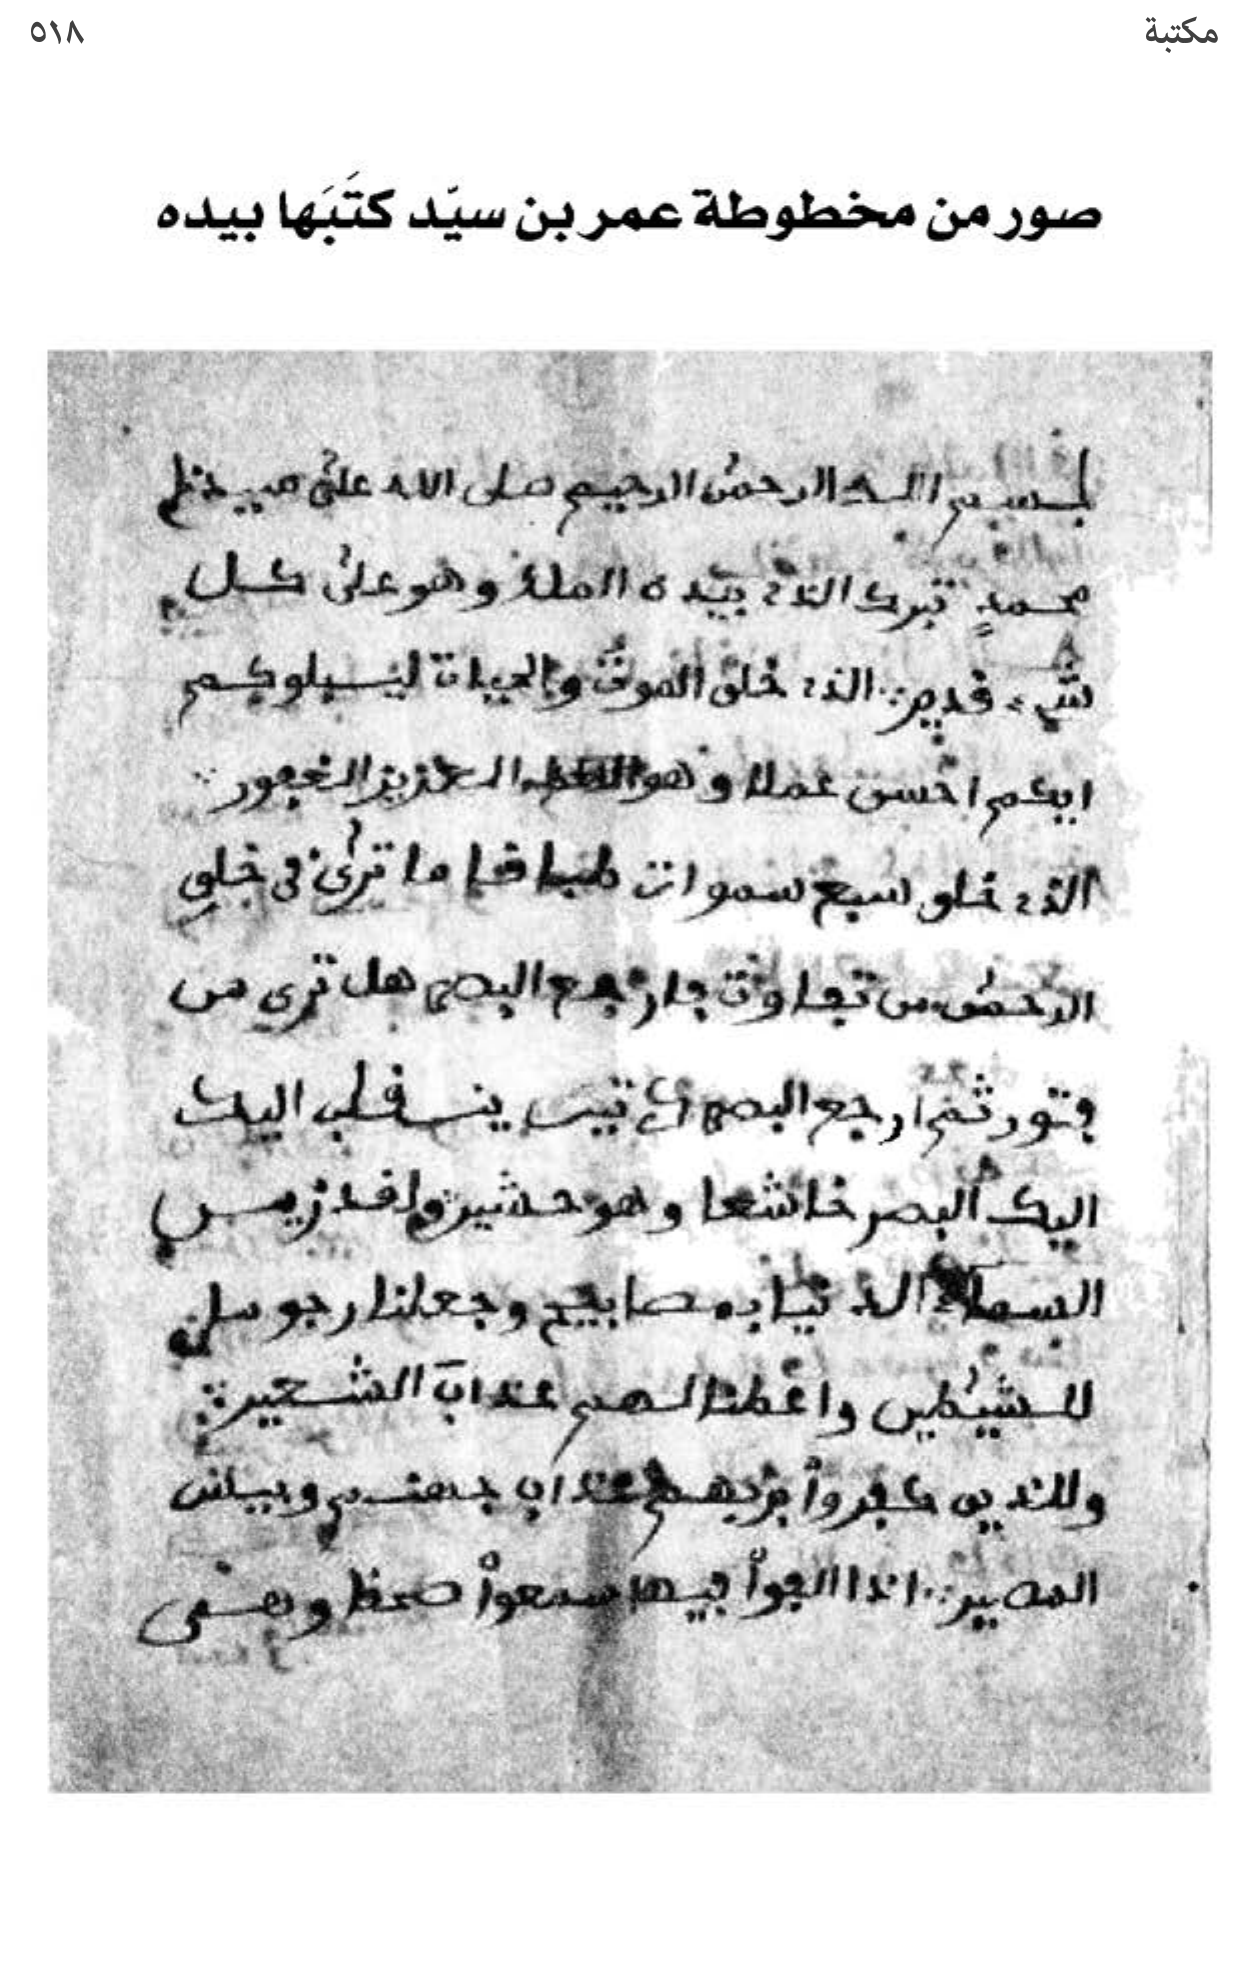 مكتبة ٥١٨
صور من مخطوطة عمر بن سيّد كتَبَها بيده
بسم الله الرحمن الرحيم صلى الله على
محمدٍ تبرك الذي بيده الملك وهو على كل
شيء قدير الذي خلق الموت والحيات ليسبلوكم
ايكم احسن عملا وهو العزيز الغفور
الذي خلق سبع سموات طباقا ما ترى في خلق
الرحمن من تفاوت فارجع البصر هل ترى من
فتور ثم ارجع البصر ينسقلب اليك
اليك البصر خاشعا وهو حشير ولقد زيس
السماء الدنيا بمصابيح وجعلنا رجو
للشيطين واعطنا لهم عذاب الشعير
وللذين كفروا بربهم عذاب جهنم وبيس
المصير اذا القوا فيها سمعوا وهى